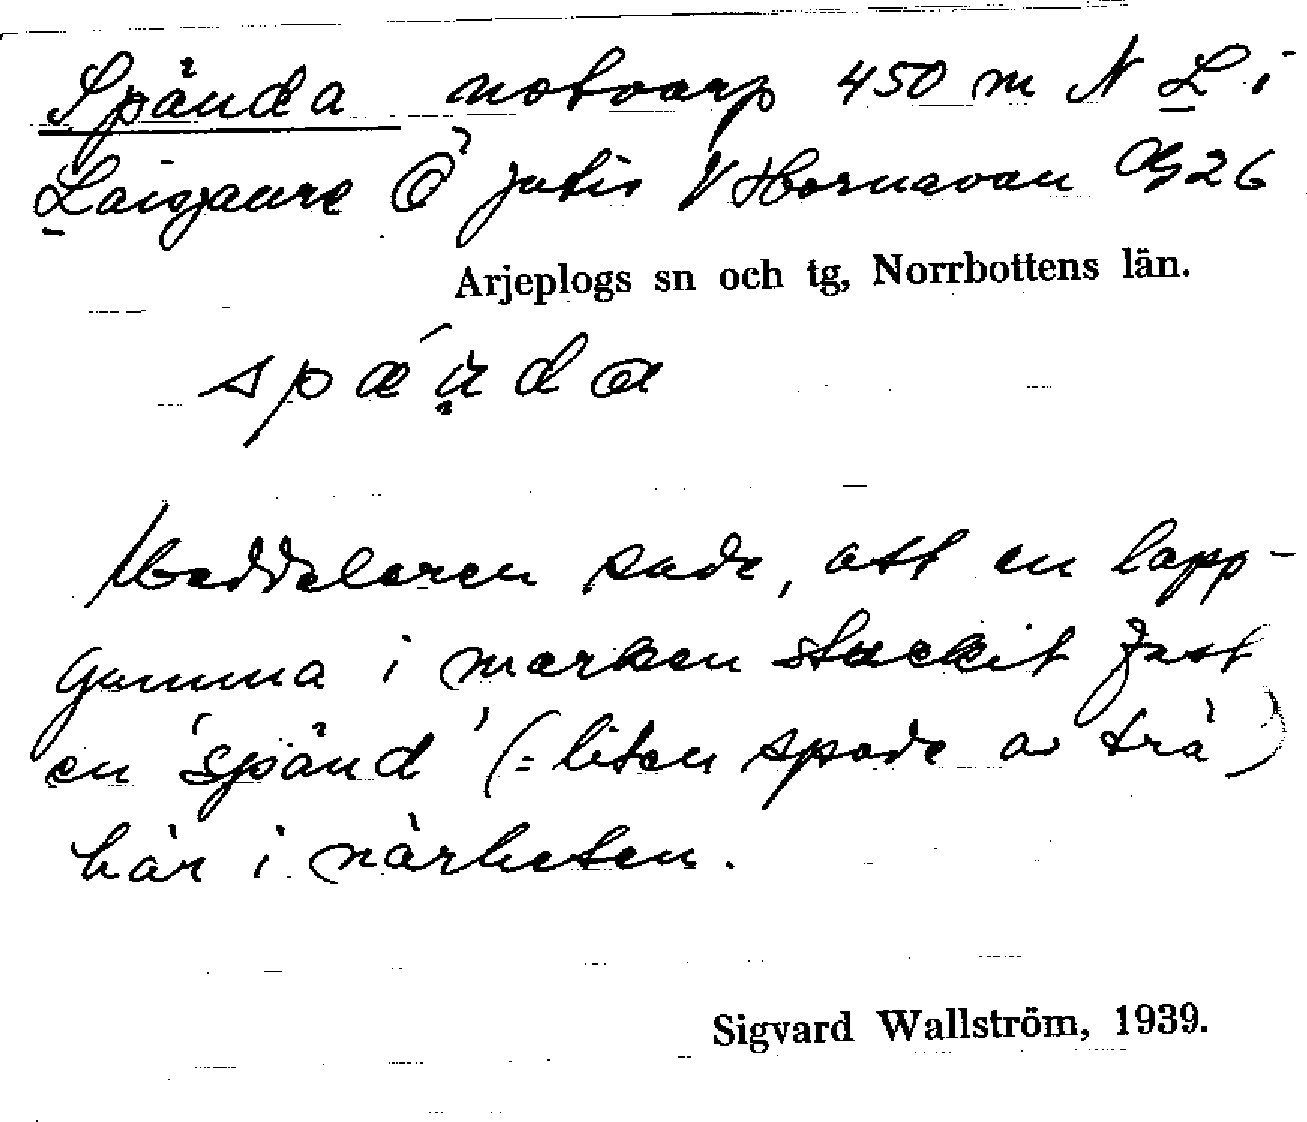 Spända notvarp 450 m N L i
Laisjaure Ö Jutis V Hornavan Bg 26
Arjeplogs sn och tg, Norrbottens län.
spæ´n̥da
Meddelaren sade, att en lapp-
gumma i marken stuckit fast
en 'spänd' (= liten spade av trä)
här i närheten.
Sigvard Wallström, 1939.